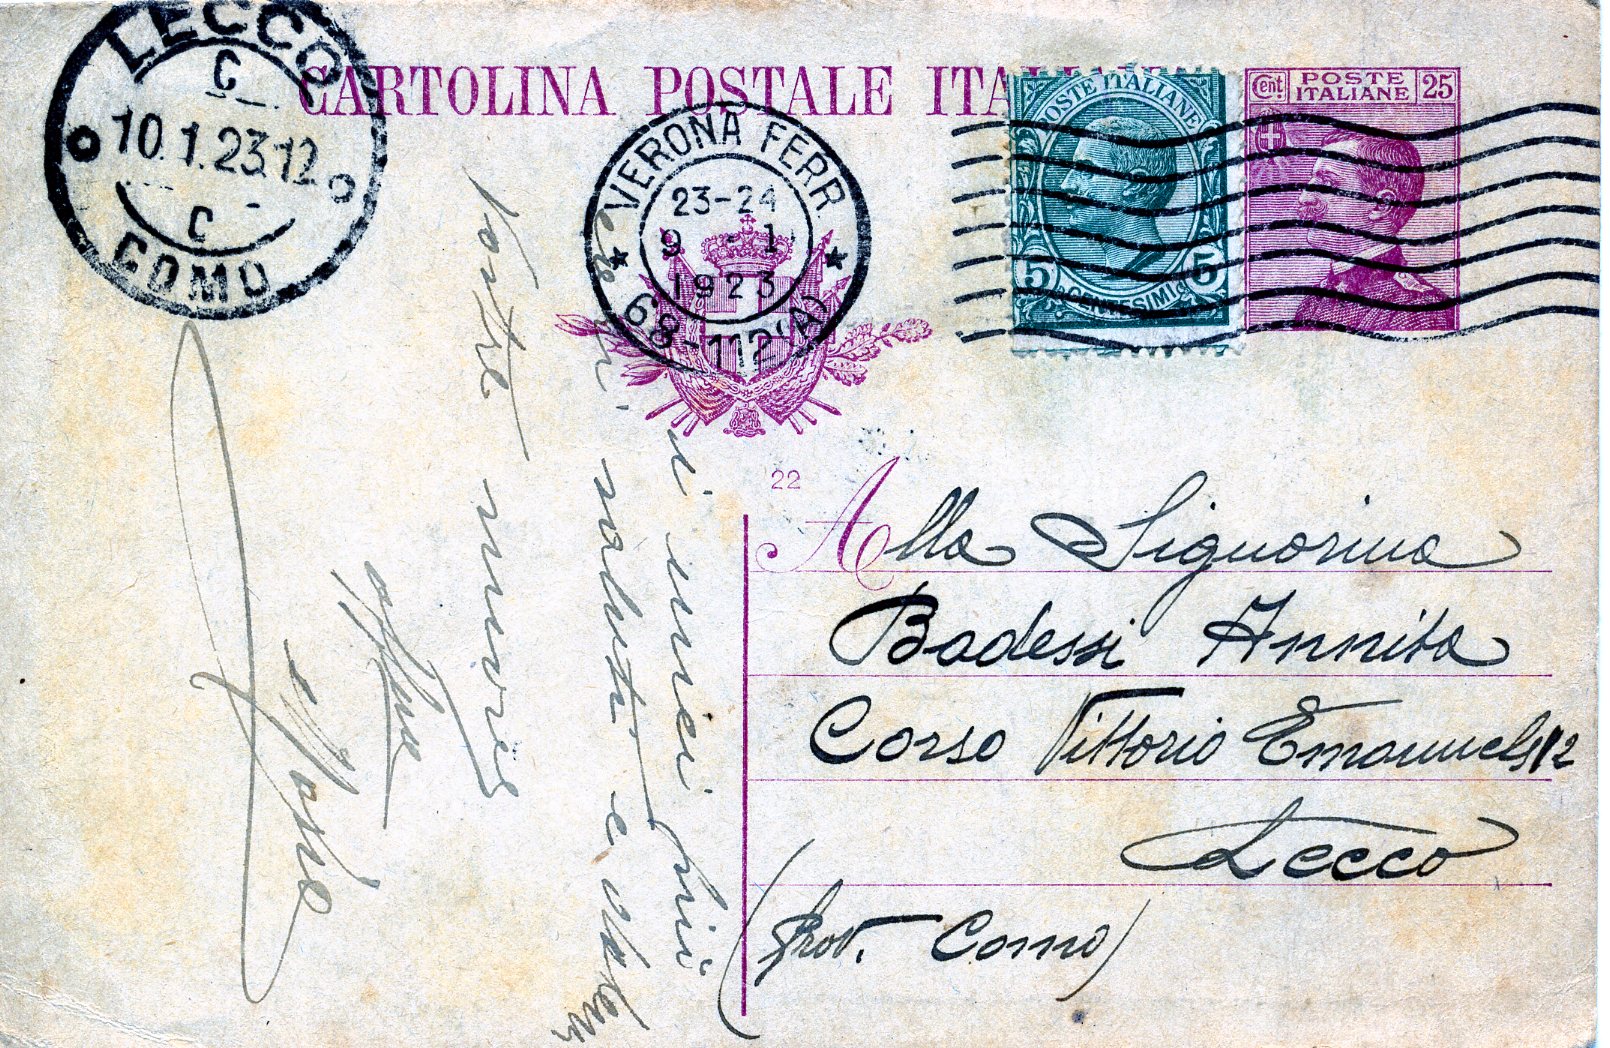 CARTOLINA POSTALE ITA
LECCO
C
10.1.23.12
C
COMO
VERONA FERR.
23-24
9 - 1
1923
68-112(A)
POSTE ITALIANE
5 5
CENTESIMI
Cent. POSTE ITALIANE 25
22
Alla Signorina
Badessi Annita
Corso Vittorio Emanuele 12
Lecco
(Prov. Como)
i miei più
saluti e